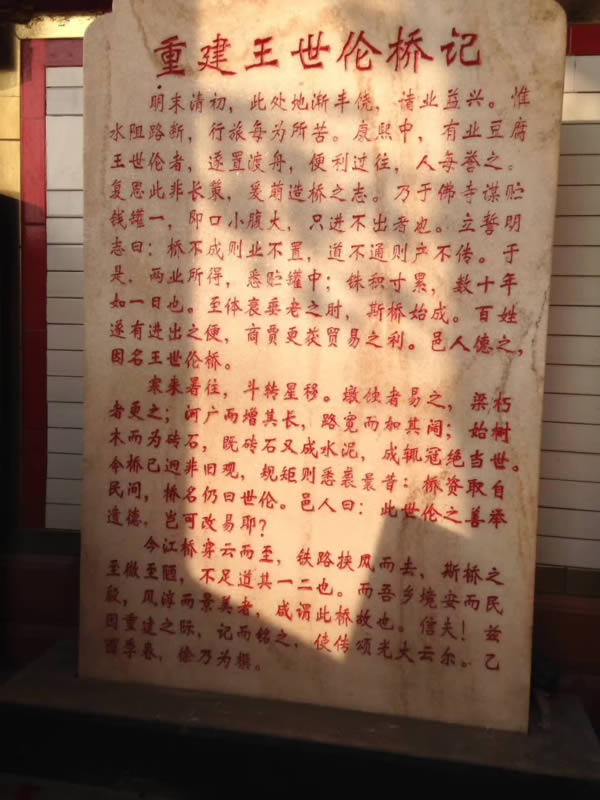 重建王世伦桥记
明末清初，此处地渐丰饶，诸业益兴。惟
水阻路断，行旅每为所苦。康熙中，有业豆腐
王世伦者，遂置渡舟，便利过往，人每誉之。
复思此非长策，爰萌造桥之志。乃于佛寺谋贮
钱罐一，即口小腹大，只进不出者也。立誓明
志曰：桥不成则业不置，道不通则产不传。于
是，两业所得，悉贮罐中；铢积寸累，数十年
如一日也。至体衰垂老之时，斯桥始成。百姓
遂有进出之便，商贾更获贸易之利。邑人德之，
因名王世伦桥。
寒来暑往，斗转星移。墩蚀者易之，梁朽
者更之；河广而增其长，路宽而加其阔；始树
木而为砖石，既砖石又成水泥，成辄冠绝当世。
令桥已迥非旧观，规矩则悉袭曩昔：桥资取自
民间，桥名仍曰世伦。邑人曰：此世伦之善举
遗德，岂可改易耶？
今江桥穿云而至，铁路挟风而去，斯桥之
至微至陋，不足道其一二也。而吾乡境安而民
殷，风淳而景美者，咸谓此桥故也。信夫！兹
因重建之际，记而铭之，使传颂光大云尔。乙
酉季春，徐乃为撰。